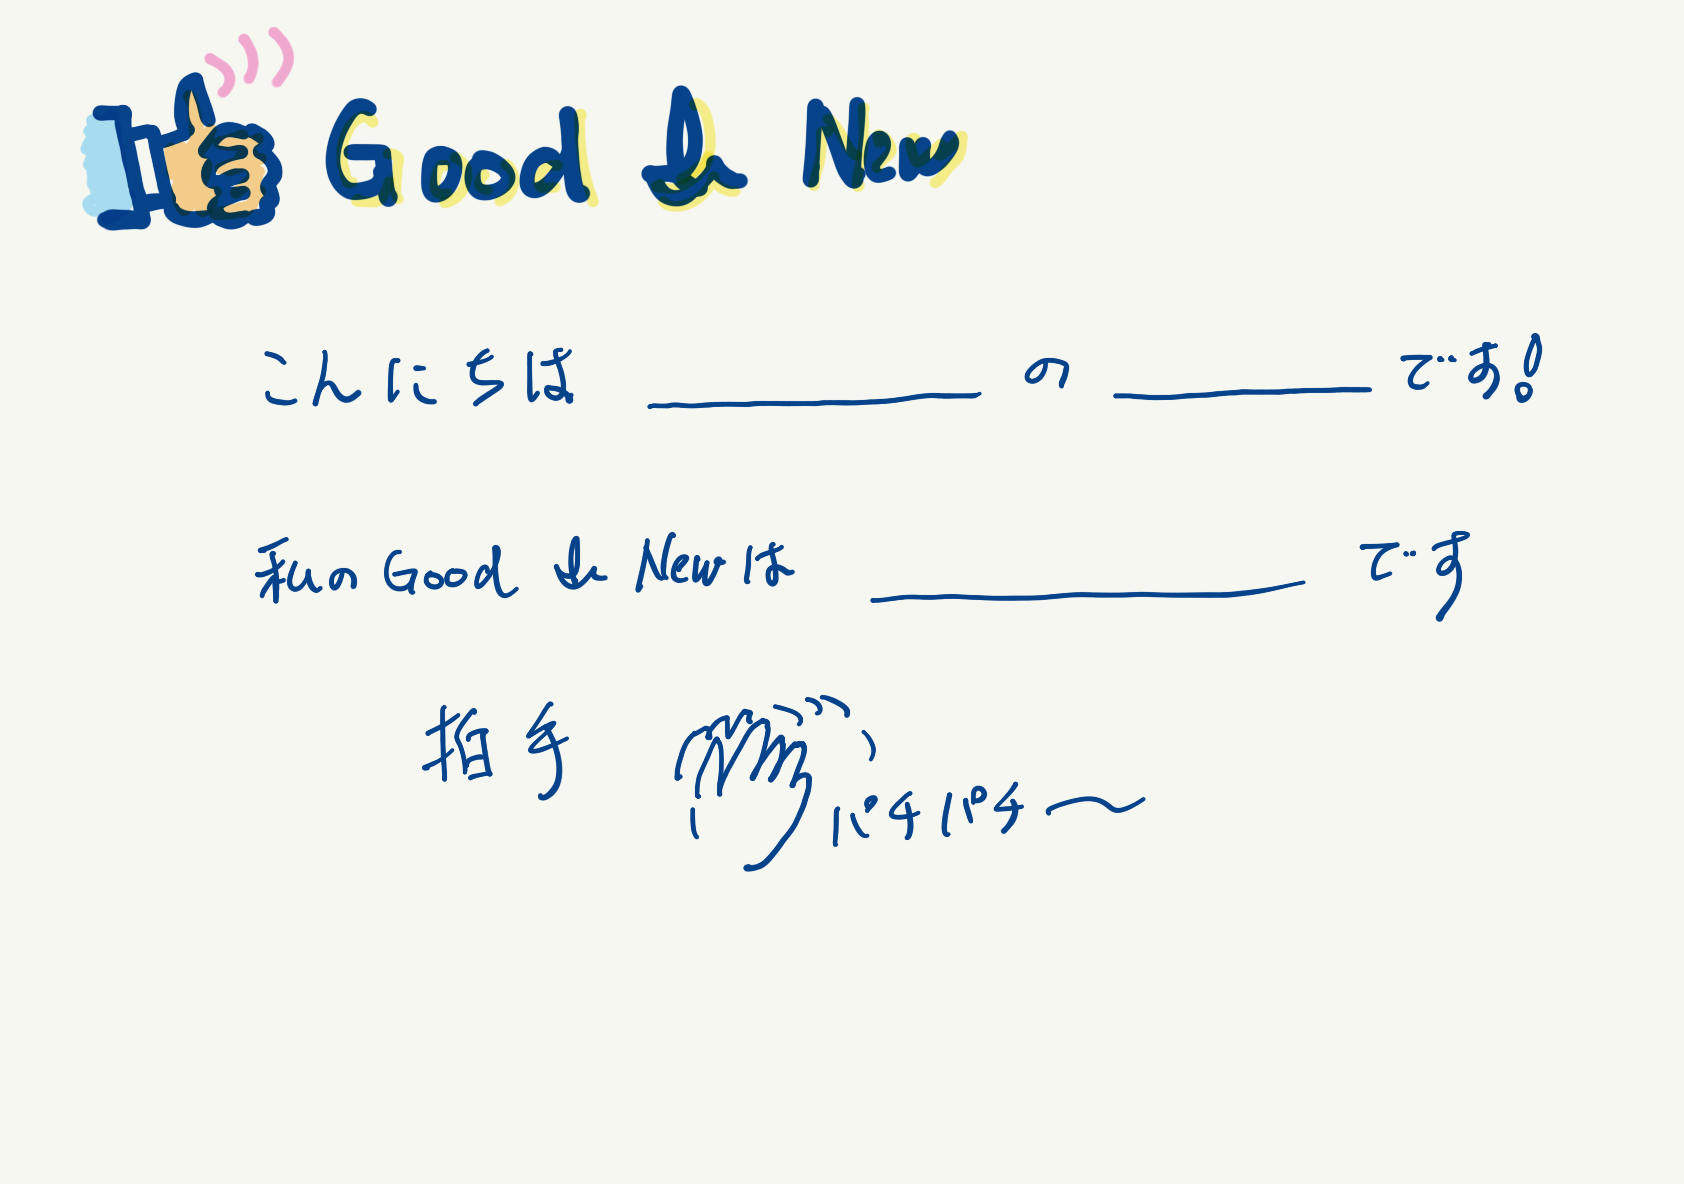 Good & New
こんにちは ＿＿＿＿ の ＿＿＿＿ です!
私の Good & Newは ＿＿＿＿ です
拍手
パチパチ〜